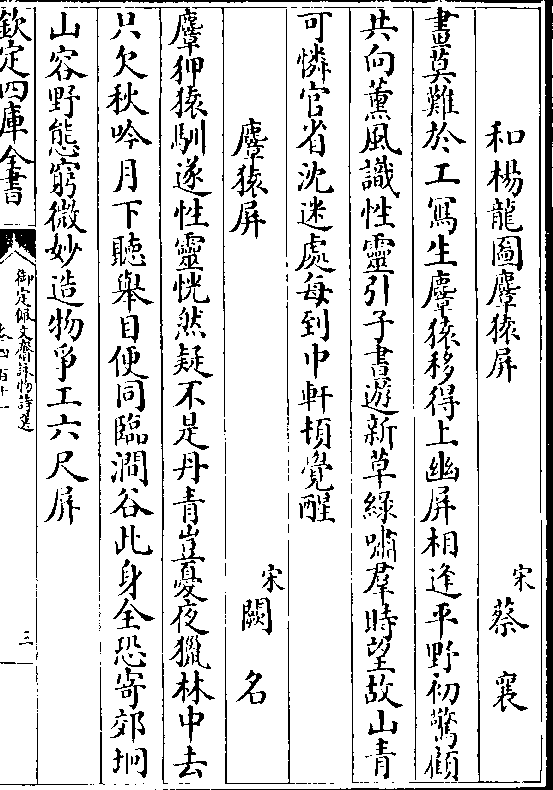 和楊龍圖麞猿屏
宋蔡襄
畫莫難於工冩生麞猿移得上幽屏相逢平野初驚顧
共向薰風識性靈引子書遊新草緑嘯羣時望故山青
可憐官省沈迷處每到中軒頓覺醒
麞猿屏
宋闕名
麞狎猿馴遂性靈恍然疑不是丹青豈憂夜獵林中去
只欠秋吟月下聽舉目便同臨澗谷此身全恐寄郊坰
山容野態窮微妙造物爭工六尺屏
欽定四庫全書
御定佩文齋詠物詩選
卷四百十一
三